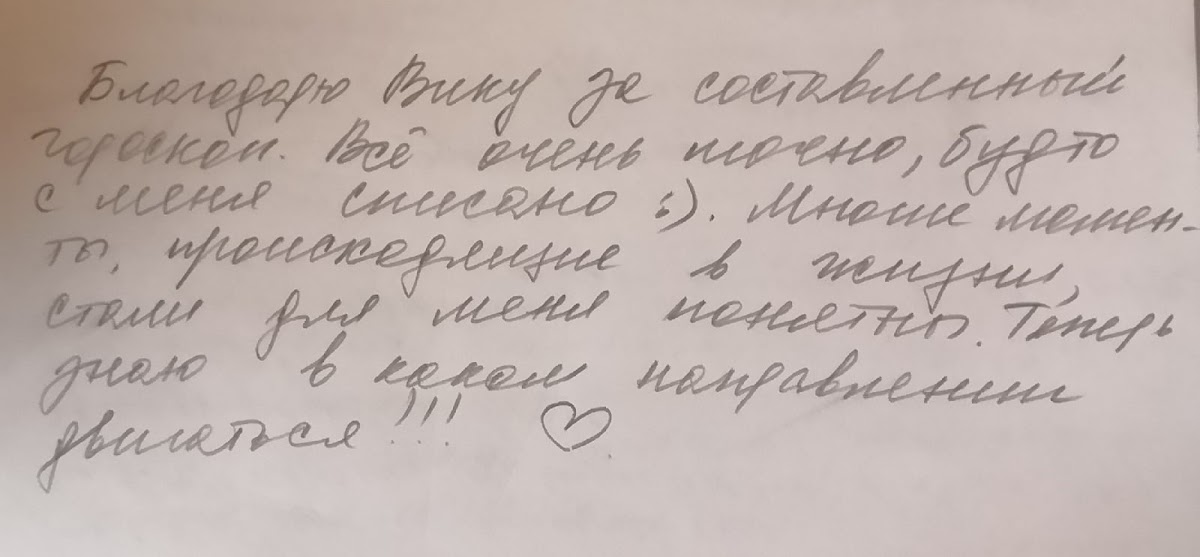 Благодарю Вику за составленный
гороскоп. Всё очень точно, будто
с меня списано :). Многие момен-
ты, происходящие в жизни,
стали для меня понятны. Теперь
знаю в каком направлении
двигаться!!! ♡